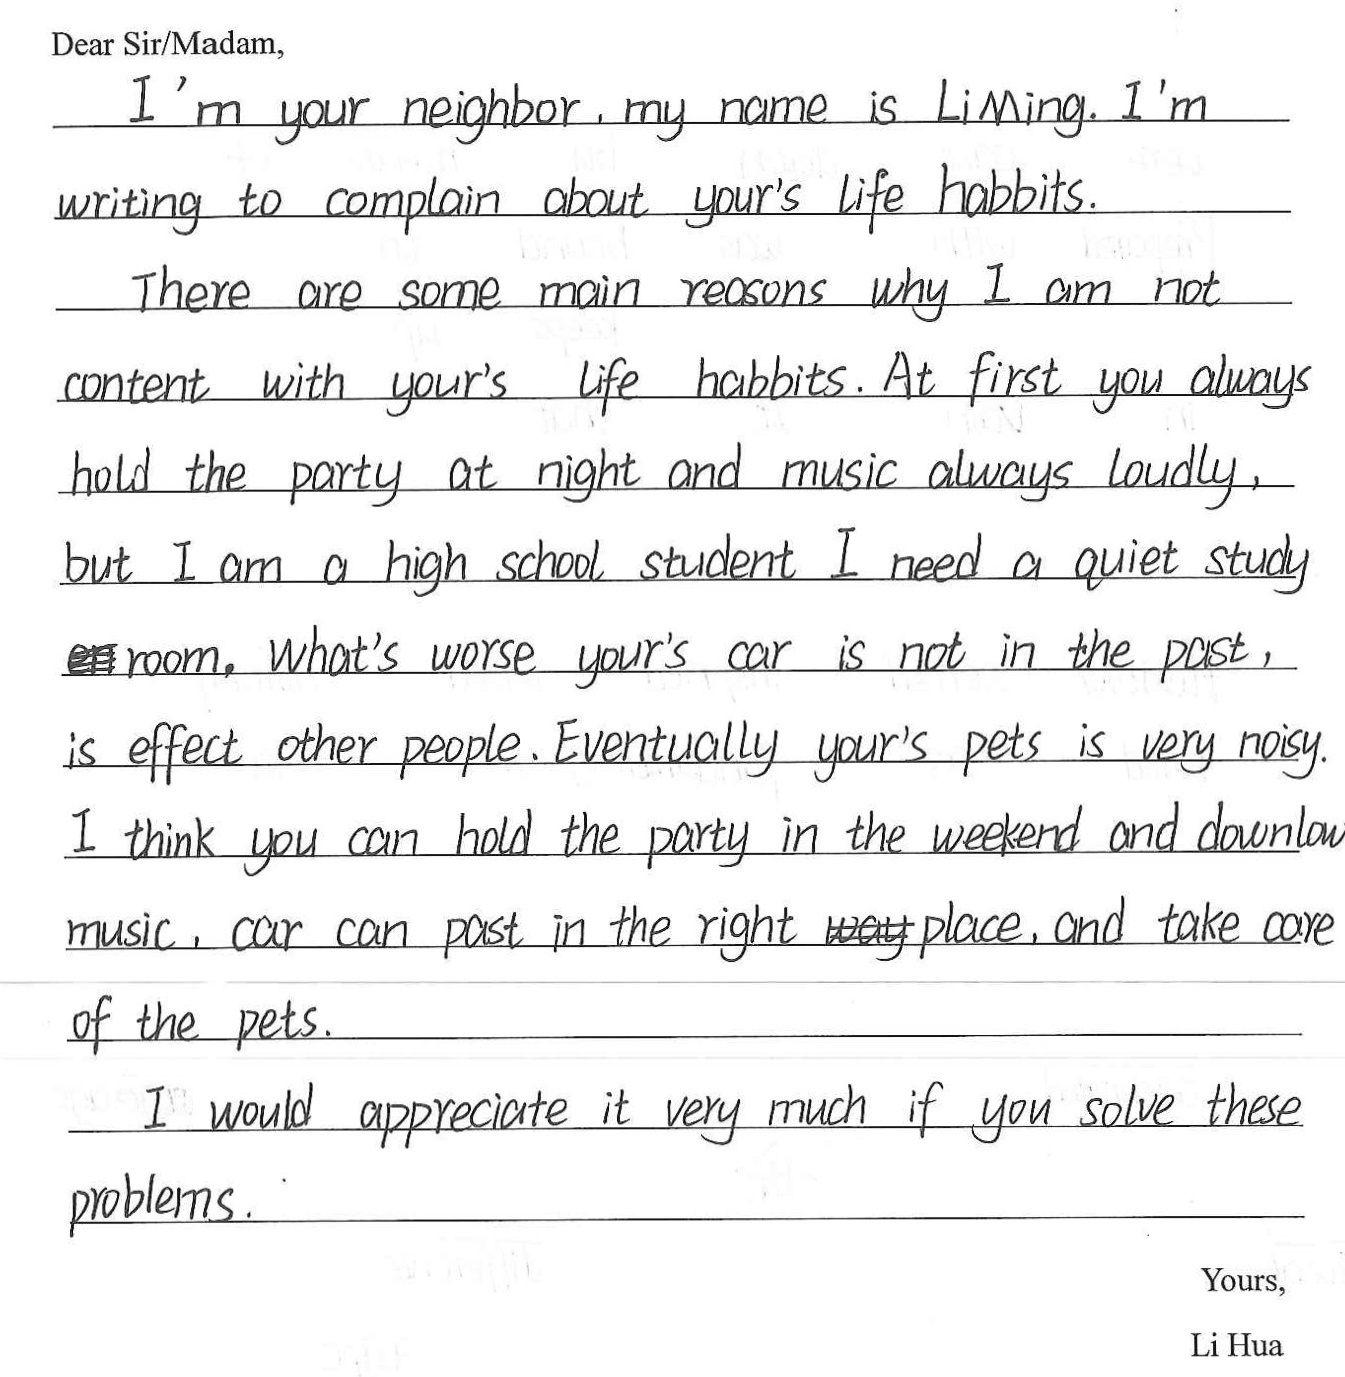 Dear Sir/Madam,
I'm your neighbor, my name is Li Ming. I'm
writing to complain about your's life habbits.
There are some main reasons why I am not
content with your's life habbits. At first you always
hold the party at night and music always loudly,
but I am a high school student I need a quiet study
room. What's worse your's car is not in the past,
is effect other people. Eventually your's pets is very noisy.
I think you can hold the party in the weekend and downlow
music, car can past in the right way place, and take care
of the pets.
I would appreciate it very much if you solve these
problems.
Yours,
Li Hua